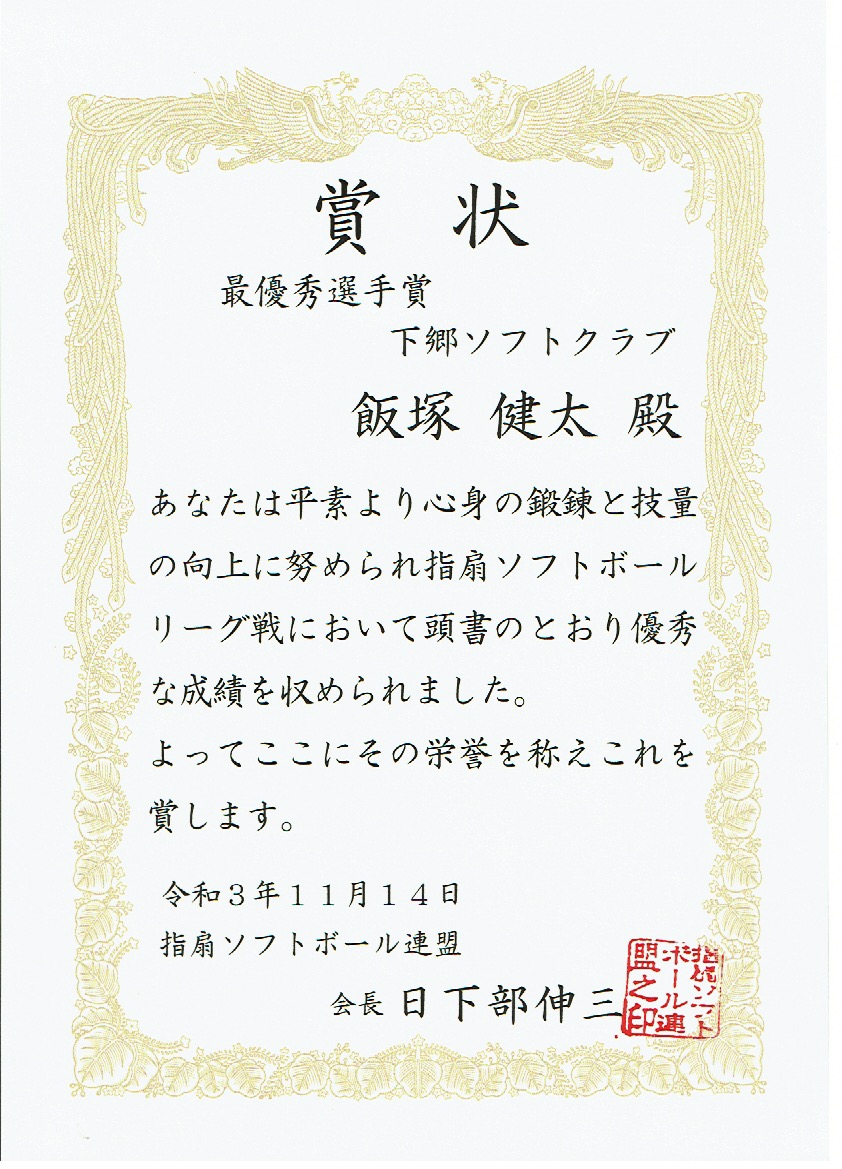 賞 状
最優秀選手賞
下郷ソフトクラブ
飯塚 健太 殿
あなたは平素より心身の鍛錬と技量
の向上に努められ指扇ソフトボール
リーグ戦において頭書のとおり優秀
な成績を収められました。
よってここにその栄誉を称えこれを
賞します。
令和３年１１月１４日
指扇ソフトボール連盟
会長 日下部伸三
指扇ソフト
ボール連
盟之印